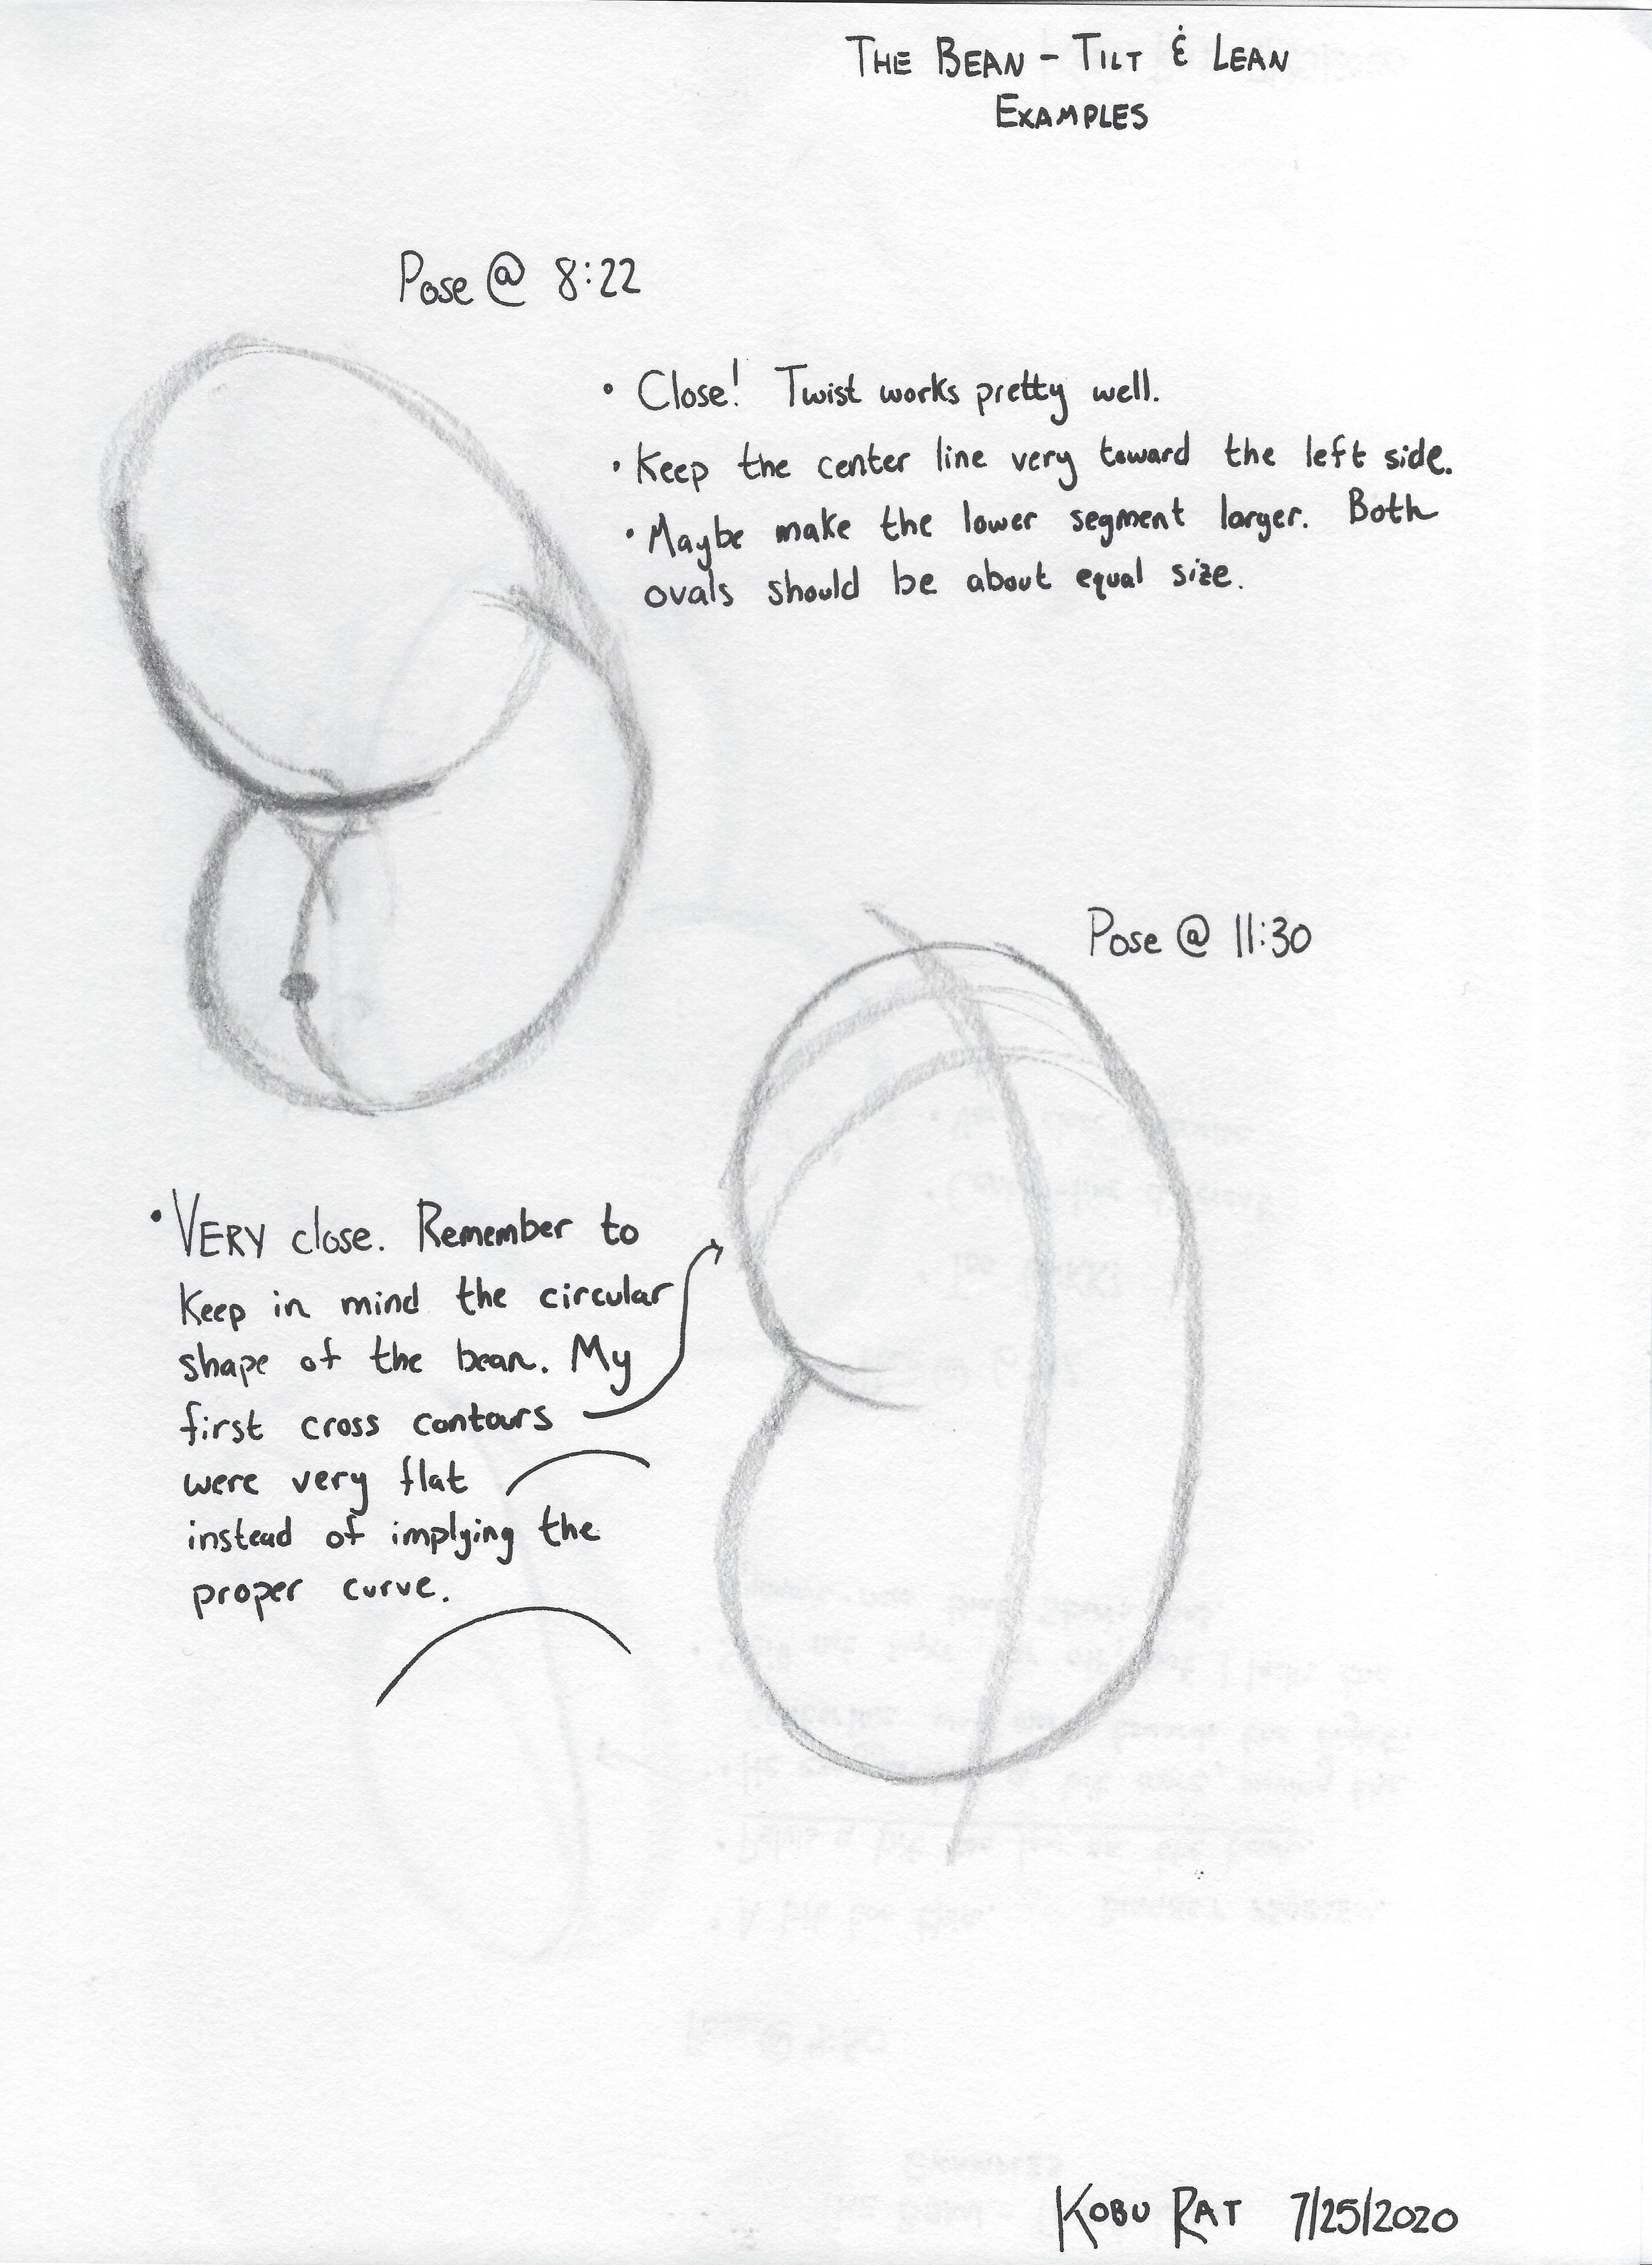 THE BEAN - TILT & LEAN
EXAMPLES
Pose @ 8:22
• Close! Twist works pretty well.
• Keep the center line very toward the left side.
• Maybe make the lower segment larger. Both
ovals should be about equal size.
Pose @ 11:30
• VERY close. Remember to
keep in mind the circular
shape of the bean. My
first cross contours
were very flat
instead of implying the
proper curve.
KOBU RAT 7/25/2020